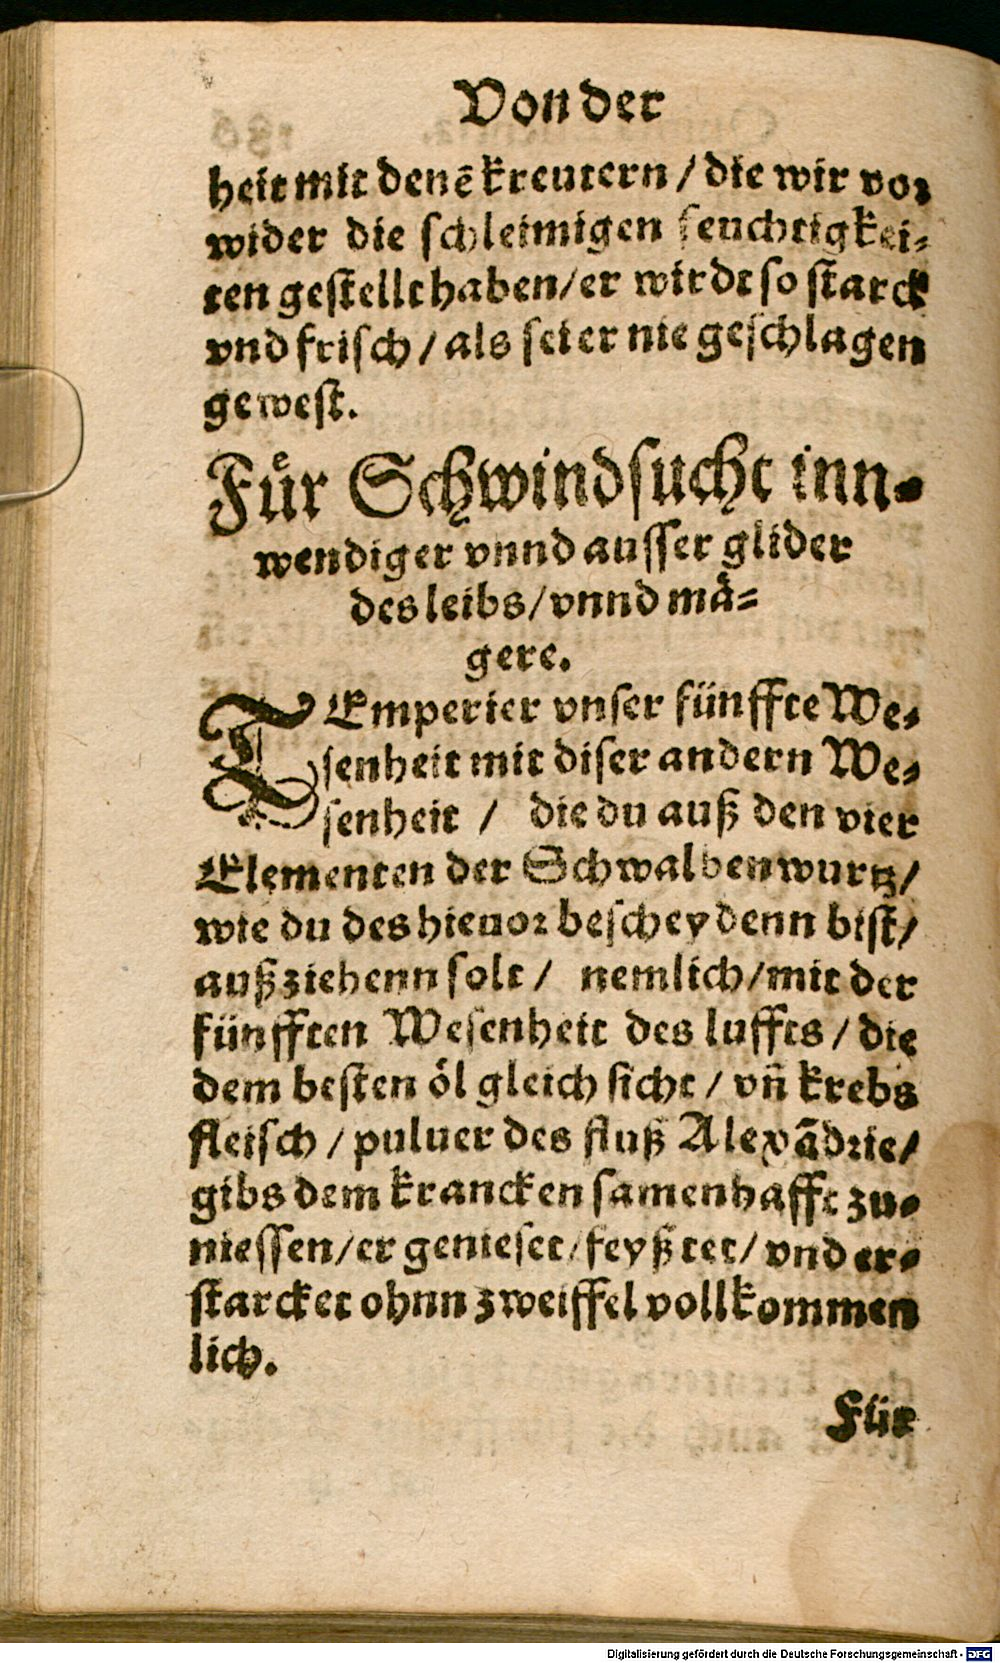 Von der
heit mit denē kreutern / die wir vor
wider die schleimigen feuchtigkei⸗
ten gestellt haben/er wirdt so starck
vnd frisch / als sei er nie geschlagen
gewest.
Fuͤr Schwindsucht inn⸗
wendiger vnnd ausser glider
des leibs/vnnd maͤ⸗
gere.
TEmperier vnser fünffte We⸗
senheit mit diser andern We⸗
senheit / die du auß den vier
Elementen der Schwalbenwurtz/
wie du des hieuor bescheydenn bist/
außziehenn solt / nemlich/mit der
fünfften Wesenheit des luffts / die
dem besten oͤl gleich sicht / vñ krebs
fleisch / puluer des fluß Alexãdrie/
gibs dem krancken samenhafft zu⸗
niessen/er genieset/feyßtet/vnd er⸗
starcket ohnn zweiffel vollkommen
lich.
Für
Digitalisierung gefördert durch die Deutsche Forschungsgemeinschaft - DFG